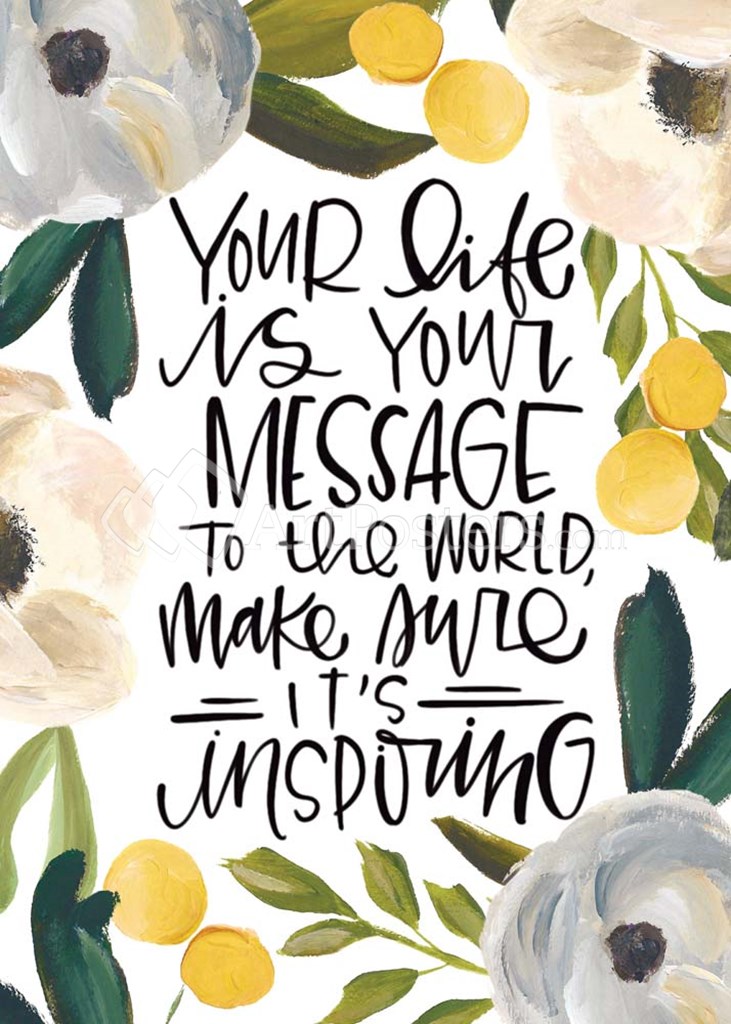 YOUR life
is YOUR
MESSAGE
TO the WORLD,
make sure
IT'S
inspiring
ArtPosters.com